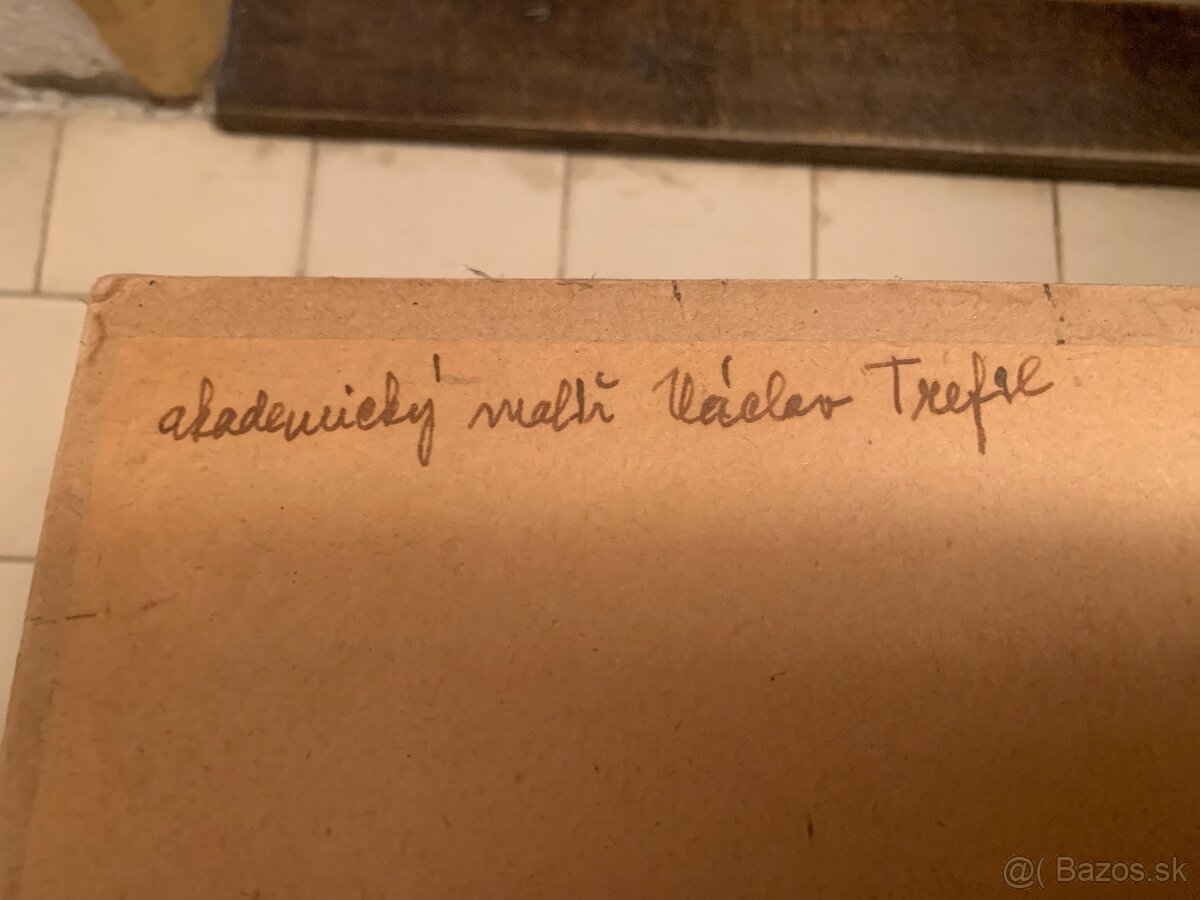 akademický malíř Václav Trefil
@( Bazos.sk